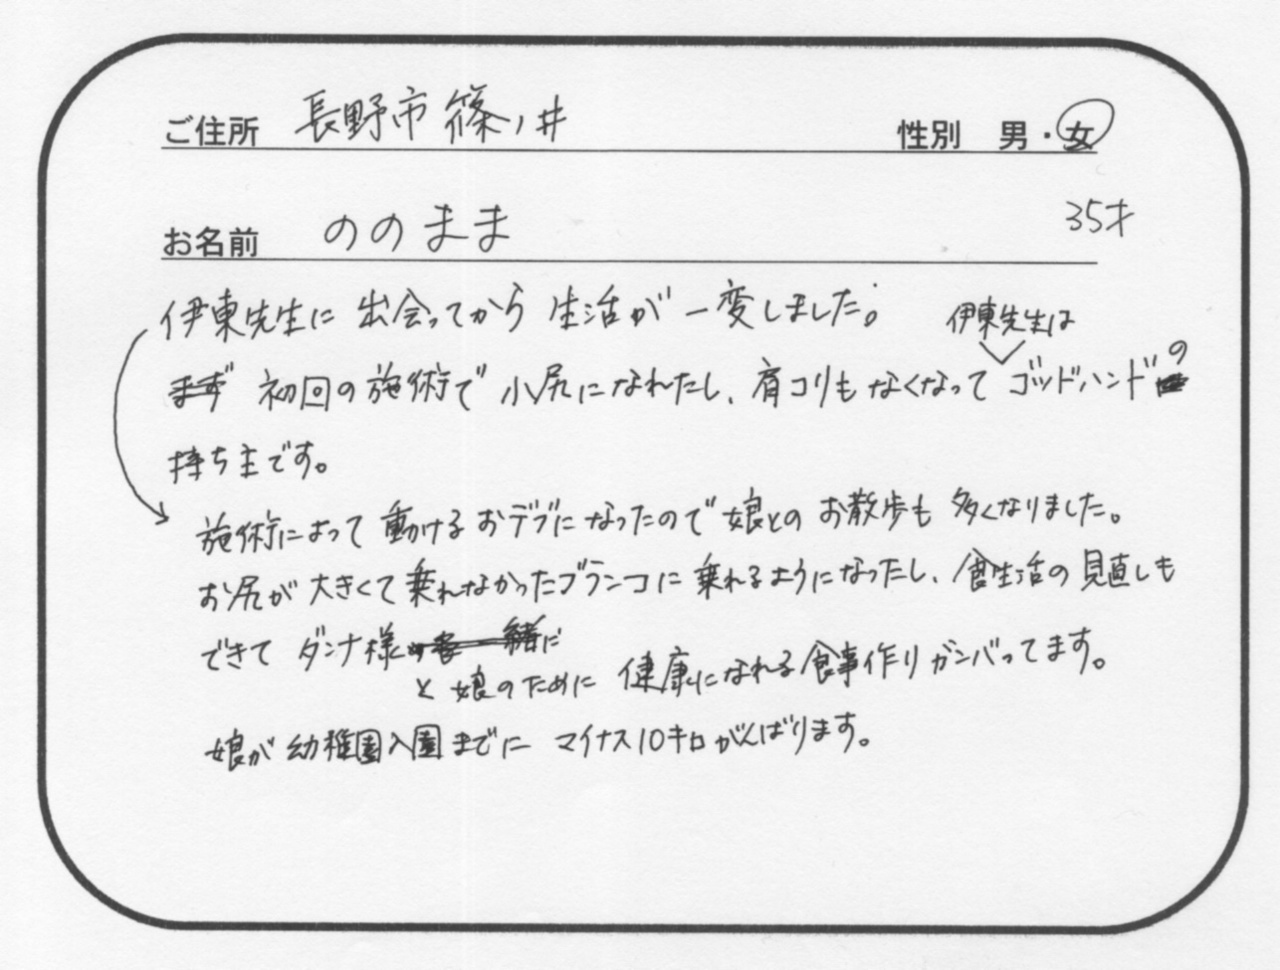 ご住所 長野市篠ノ井 性別 男・女
お名前 ののまま 35才
伊東先生に出会ってから生活が一変しました。
伊東先生は
まず 初回の施術で小尻になれたし、肩コリもなくなってゴッドハンドの
持ち主です。
施術によって動けるおデブになったので娘とのお散歩も多くなりました。
お尻が大きくて乗れなかったブランコに乗れるようになったし、食生活の見直しも
できてダンナ様
と娘のために健康になれる食事作りガンバってます。
娘が幼稚園入園までにマイナス10キロがんばります。